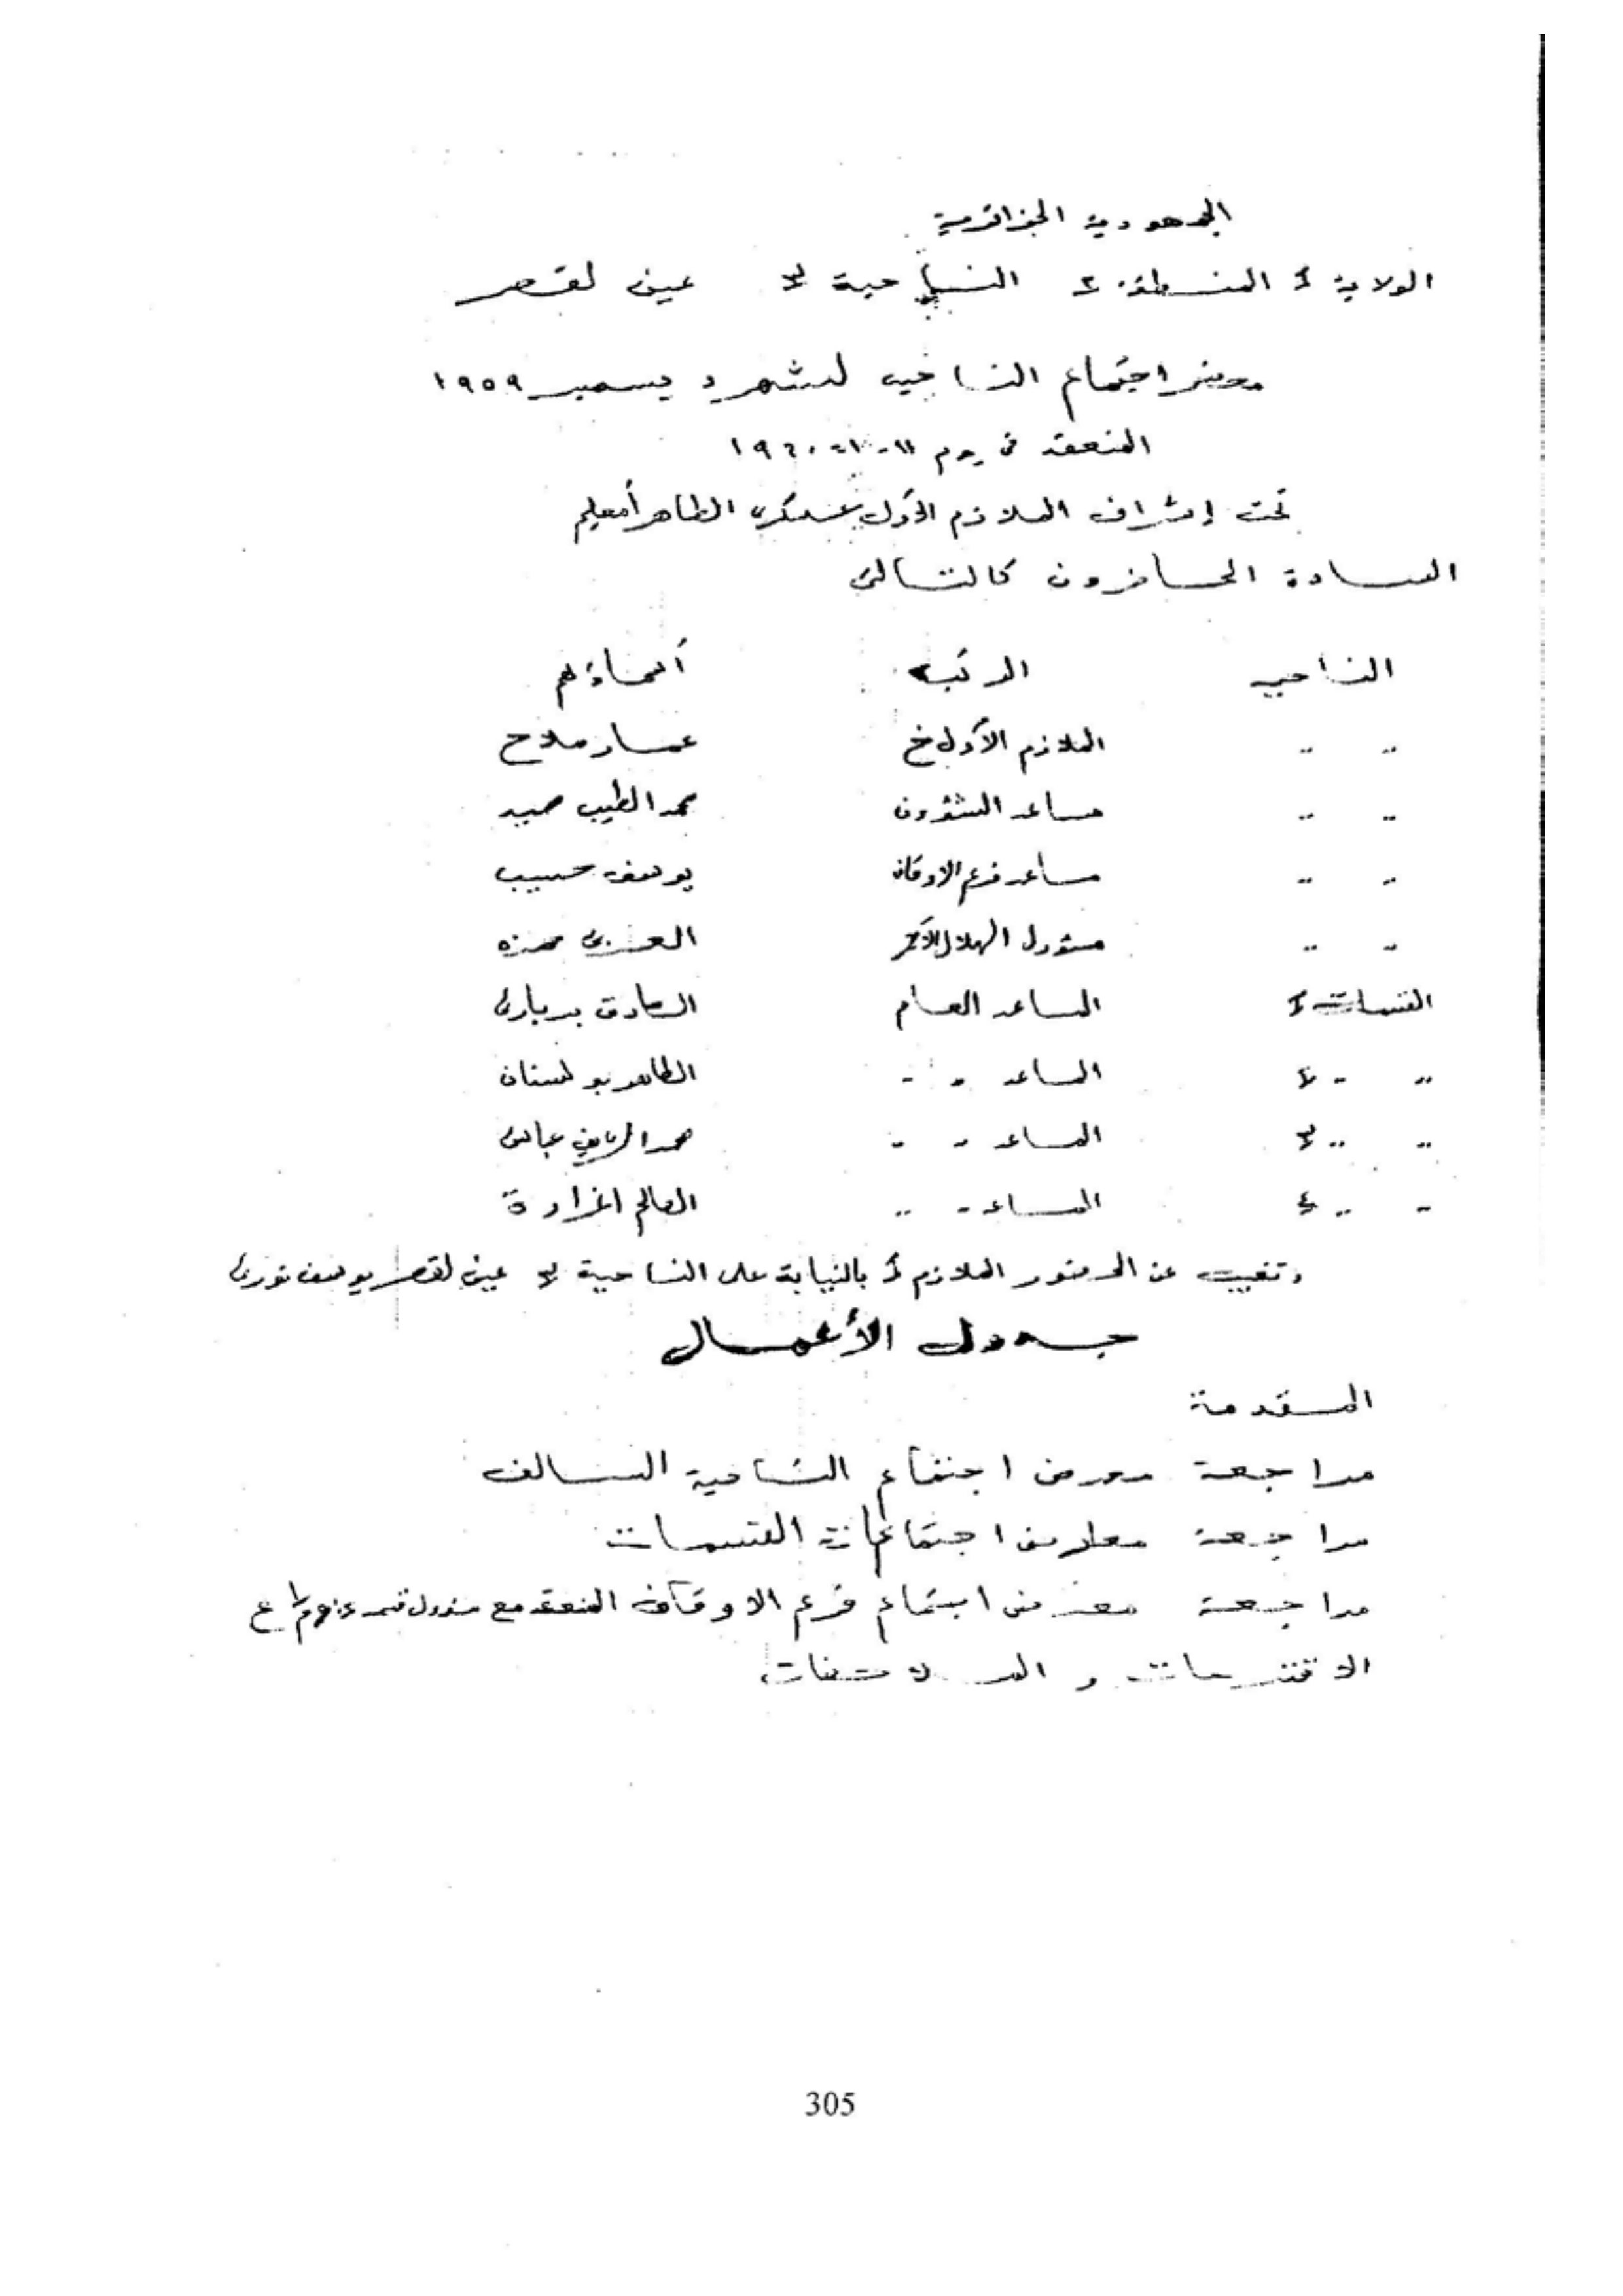 الجمهورية الجزائرية
الولاية ١ المنطقة ٢ الناحية ٣ عين لقصر
محضر اجتماع الناحية لشهر ديسمبر ١٩٥٩
المنعقد في يوم ١١-١-١٩٦٠
تحت إشراف الملازم الأول عسكري الطاهر أمعليم
السادة الحاضرون كالتالي
الناحية الرتبة أسماؤهم
" " الملازم الأول خ عمار ملاح
" " مساعد الشؤون محمد الطيب صيد
" " مساعد فرع الاوقاف يوسف حبيب
" " مسؤول الهلال الأحمر العربي حمزه
القسمات ١ المساعد العام الصادق بربارى
" - ٢ المساعد - - الطاهر بولسنان
" " ٣ المساعد - - محمد الريفي عباس
- " ٤ المساعد - " الصالح اغرارة
وتغيب عن الحضور الملازم ١ بالنيابة على الناحية ٣ عين لقصر يوسف نورى
جدول الأعمال
المقدمة
مراجعة معرض اجتماع الناحية السالف
مراجعة معارض اجتماعات القسمات
مراجعة معرض اجتماع فرع الاوقاف المنعقد مع مسؤول
الاقترحات و
305